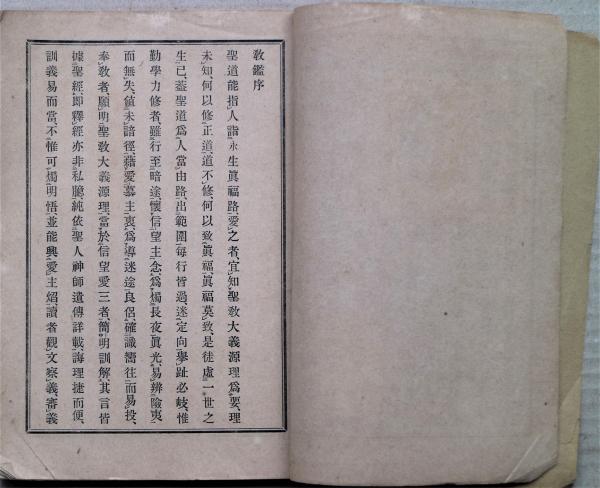 敎鑑序
聖道、能指人詣永生眞福路、愛之者、宜知聖敎大義源理爲要、理
未知、何以修正道、道不修、何以致眞福、眞福莫致、是徒虛一世之
生已、蓋聖道爲人當由路、出範圍每行皆過、迷定向擧趾必岐、惟
勤學力修者、雖行至暗途、懷信望主念、爲燭長夜眞光、易辨險夷
而無失、値未諳徑、藉愛慕主衷、爲導迷途良侶、確識嚮往而易投、
奉敎者、願明聖敎大義源理、當於信望愛三者、簡明訓解、其言皆
據聖經、即釋經亦非私臆、純依聖人神師遺傳詳載、誨理捷而便、
訓義易而當、不惟可燭明悟、並能興愛主熖、讀者觀文察義、審義